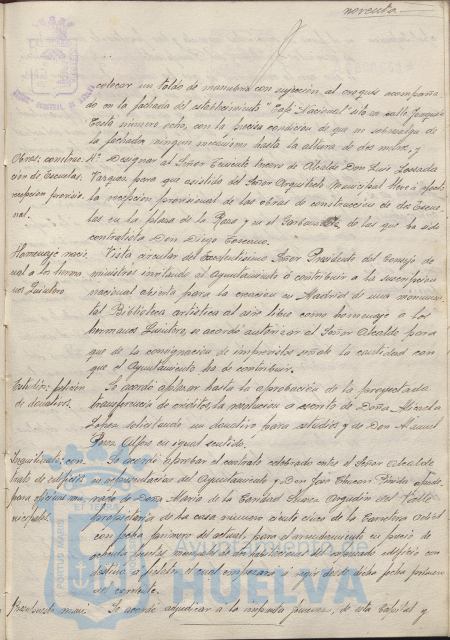 noventa
colocar un toldo de manubrio con sujeción al croquis acompaña-
do en la fachada del establecimiento "Café Nacional" sito en calle Joaquín
Costa número ocho, con la precisa condición de que no sobresalga de
la fachada ningún mecanismo hasta la altura de dos metros, y
Obras: construc-
ción de Escuelas.
recepción provisio-
nal.
4º. Designar al Señor Teniente tercero de Alcalde Don Luis Losada
Vázquez para que asistido del Señor Arquitecto Municipal lleve a efecto
la recepción provisional de las obras de construcción de dos Escue-
las en la plaza de la Raza y en el de las que ha sido
contratista Don Diego
Homenaje nacio-
nal a los herma-
nos Quintero
Vista circular del Excelentísimo Señor Presidente del Consejo de
ministros invitando al Ayuntamiento á contribuir a la suscripción
nacional abierta para la creación en Madrid de una monumen-
tal Biblioteca artística al aire libre como homenaje a los
hermanos Quintero, se acordó autorizar al Señor Alcalde para
que de la consignación de imprevistos señale la cantidad con
que el Ayuntamiento ha de contribuir.
petición
de donativos.
Se acordó aplazar hasta la aprobación de la proyectada
transferencia de créditos, la resolución a escrito de Doña Micaela
López solicitando un donativo para estudios y de Don Manuel
Pérez en igual sentido.
Inquilinato: con-
trato de edificio
para oficinas mu-
nicipales
Se acordó aprobar el contrato celebrado entre el Señor Alcalde
en representación del Ayuntamiento y Don José
de Doña María de la Caridad Suárez Argudín del Valle
propietaria de la casa número ciento cinco de la Carretera Odiel
con fecha primero del actual, para el arrendamiento en precio de
pesetas mensuales de habitaciones del indicado edificio con
destino a el cual empezará a regir desde dicha fecha primero
del corriente.
Se acordó adjudicar a la imprenta Jiménez, de esta Capital y
Ayuntamiento de
HUELVA
PORTUS MARIS
ET TERRAE